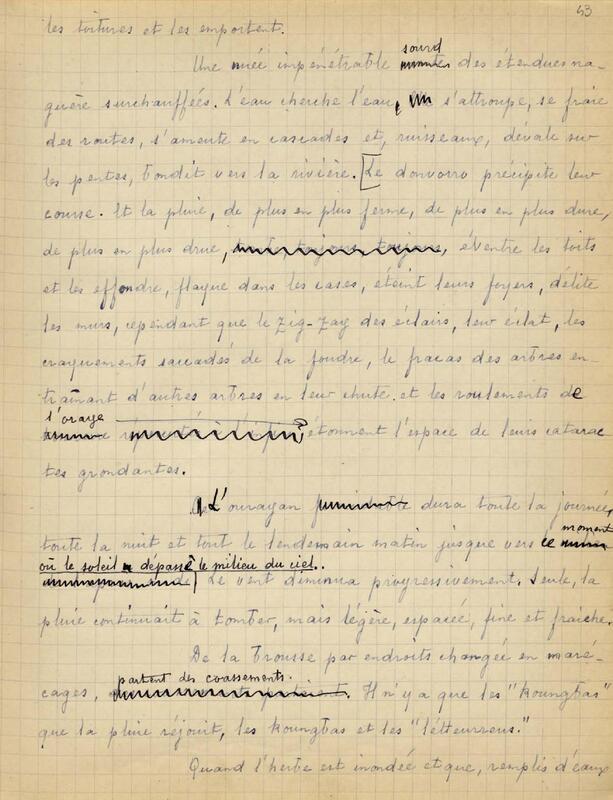 53
les toitures et les emportent.
Une nuée impénétrable sourd des étendues na-
guère surchauffées. L'eau cherche l'eau, s'attroupe, se fraie
des routes, s'amente en cascades et, ruisseaux, dévale sur
les pentes, bondit vers la rivière. [Le donvorro précipite leur
course. Et la pluie, de plus en plus ferme, de plus en plus dure,
de plus en plus drue, éventre les toits
et les effondre, flaque dans les cases, éteint leurs foyers, délite
les murs, cependant que le Zig-Zag des éclairs, leur éclat, les
craquements saccadés de la foudre, le fracas des arbres en-
traînant d'autres arbres en leur chute. et les roulements de
l'orage étonnent l'espace de leurs catarac
tes grondantes.
L'ouragan dura toute la journée,
toute la nuit et tout le lendemain matin jusque vers ce moment
où le soleil dépassé le milieu du ciel..
Le vent diminua progressivement. Seule, la
pluie continuait à tomber, mais légère, espacée, fine et fraîche.
De la brousse par endroits changée en maré-
cages, partent des coassements. Il n'y a que les "koungbas"
que la pluie réjouit, les koungbas et les "létteurrens."
Quand l'herbe est inondée et que, remplis d'eaux